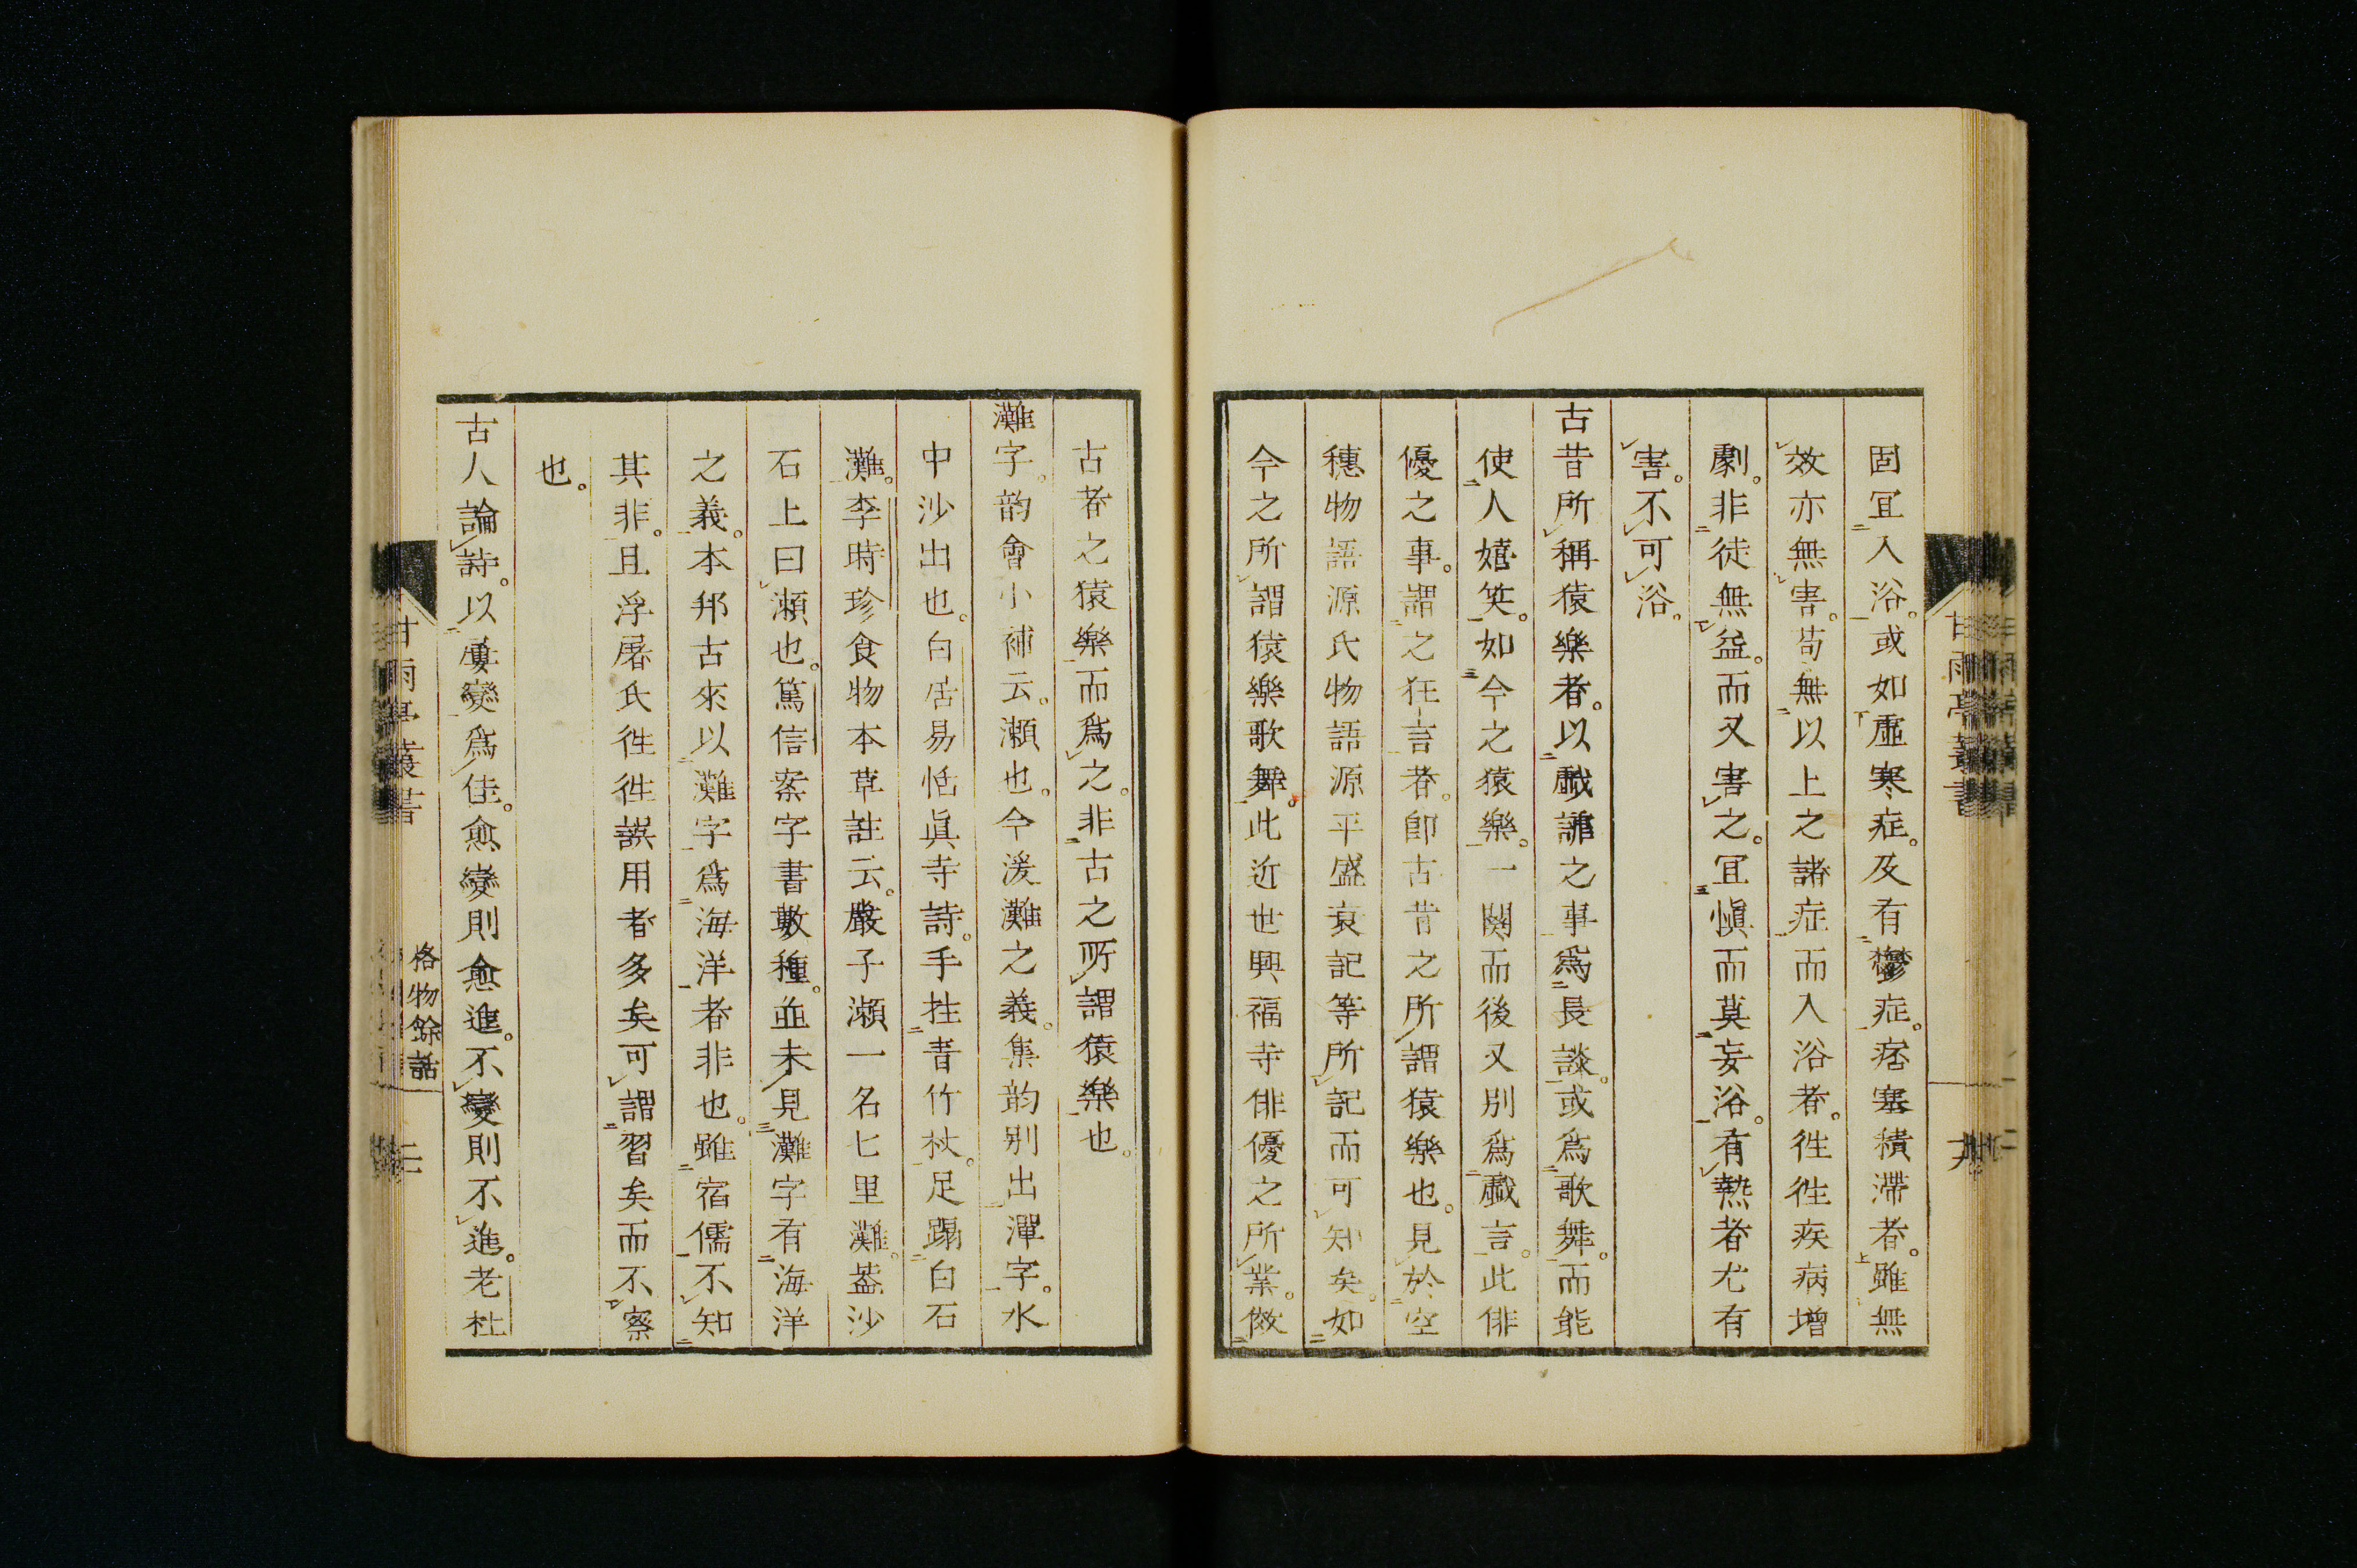 固宜入浴。或如虛寒症。及有鬱症。痞塞積滯者。雖無
效亦無害。苟無以上之諸症而入浴者。徃徃疾病增
劇。非徒無益。而又害之。宜愼而莫妄浴。有熱者尤有
害。不可浴。
古昔所稱猿樂者。以戲謔之事爲長談。或爲歌舞。而能
使人嬉笑。如今之猿樂。一闋而後又別爲戲言。此俳
優之事。謂之狂言者。卽古昔之所謂猿樂也。見於空
穗物語源氏物語源平盛衰記等所記而可知矣。如
今之所謂猿樂歌舞。此近世興福寺俳優之所業。傚
古者之猿樂而爲之。非古之所謂猿樂也。
灘字。韵會小補云。瀬也。今湲灘之義。集韵別出潬字。水
中沙出也。白居易恬眞寺詩。手拄青竹杖。足蹋白石
灘。李時珍食物本草註云。嚴子瀬一名七里灘。葢沙
石上曰瀬也。篤信案字書數種。並未見灘字有海洋
之義。本邦古來以灘字爲海洋者非也。雖宿儒不知
其非。且浮屠氏徃徃誤用者多矣。可謂習矣而不察
也。
古人論詩。以屢變爲佳。愈變則愈進。不變則不進。老杜
甘雨亭叢書
格物餘話